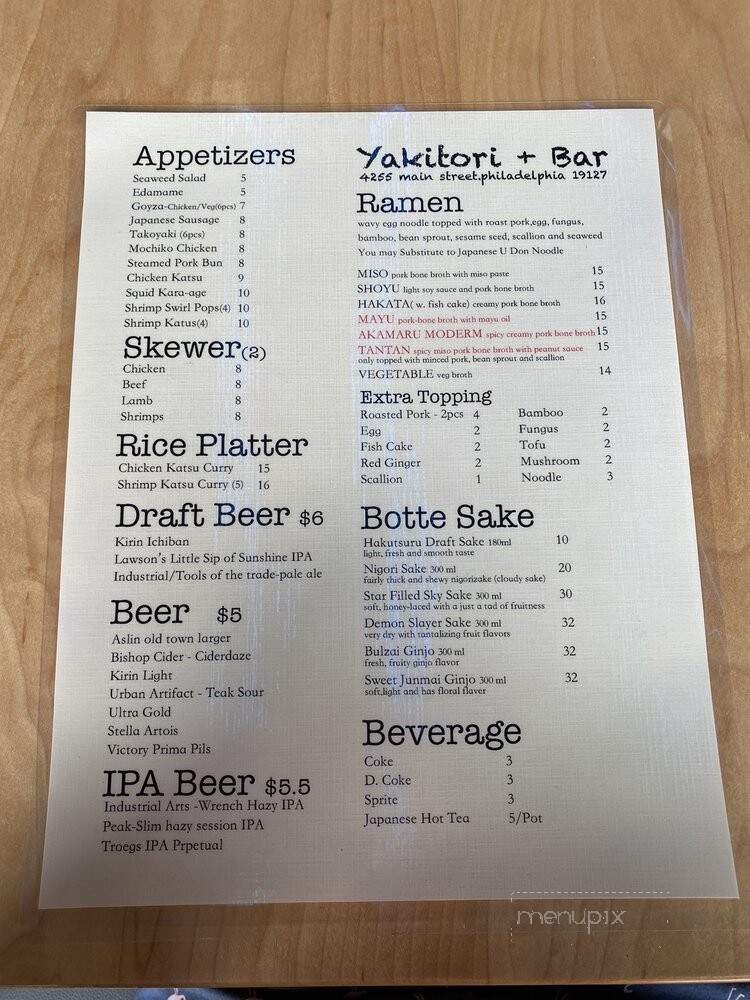 Appetizers
Seaweed Salad 5
Edamame 5
Goyza-Chicken/Veg(6pcs) 7
Japanese Sausage 8
Takoyaki (6pcs) 8
Mochiko Chicken 8
Steamed Pork Bun 8
Chicken Katsu 9
Squid Kara-age 10
Shrimp Swirl Pops(4) 10
Shrimp Katus(4) 10
Skewer(2)
Chicken 8
Beef 8
Lamb 8
Shrimps 8
Rice Platter
Chicken Katsu Curry 15
Shrimp Katsu Curry (5) 16
Draft Beer $6
Kirin Ichiban
Lawson's Little Sip of Sunshine IPA
Industrial/Tools of the trade-pale ale
Beer $5
Aslin old town larger
Bishop Cider - Ciderdaze
Kirin Light
Urban Artifact - Teak Sour
Ultra Gold
Stella Artois
Victory Prima Pils
IPA Beer $5.5
Industrial Arts -Wrench Hazy IPA
Peak-Slim hazy session IPA
Troegs IPA Prpetual
Yakitori + Bar
4255 main street,philadelphia 19127
Ramen
wavy egg noodle topped with roast pork,egg, fungus,
bamboo, bean sprout, sesame seed, scallion and seaweed
You may Substitute to Japanese U Don Noodle
MISO pork bone broth with miso paste 15
SHOYU light soy sauce and pork bone broth 15
HAKATA( w. fish cake) creamy pork bone broth 16
MAYU pork-bone broth with mayu oil 15
AKAMARU MODERM spicy creamy pork bone broth 15
TANTAN spicy miso pork bone broth with peanut sauce 15
only topped with minced pork, bean sprout and scallion
VEGETABLE veg broth 14
Extra Topping
Roasted Pork - 2pcs 4 Bamboo 2
Egg 2 Fungus 2
Fish Cake 2 Tofu 2
Red Ginger 2 Mushroom 2
Scallion 1 Noodle 3
Botte Sake
Hakutsuru Draft Sake 180ml 10
light, fresh and smooth taste
Nigori Sake 300 ml 20
fairly thick and shewy nigorizake (cloudy sake)
Star Filled Sky Sake 300 ml 30
soft, honey-laced with a just a tad of fruitness
Demon Slayer Sake 300 ml 32
very dry with tantalizing fruit flavors
Bulzai Ginjo 300 ml 32
fresh, fruity ginjo flavor
Sweet Junmai Ginjo 300 ml 32
soft,light and has floral flaver
Beverage
Coke 3
D. Coke 3
Sprite 3
Japanese Hot Tea 5/Pot
menupix